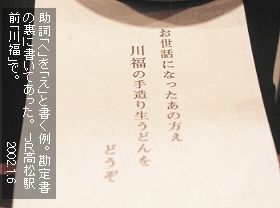 お世話になったあの方え
川福の手造り生うどんを
どうぞ
助詞「へ」を「え」と書く例。勘定書
の裏に書いてあった。JR高松駅
前「川福」で。
2002.1.6